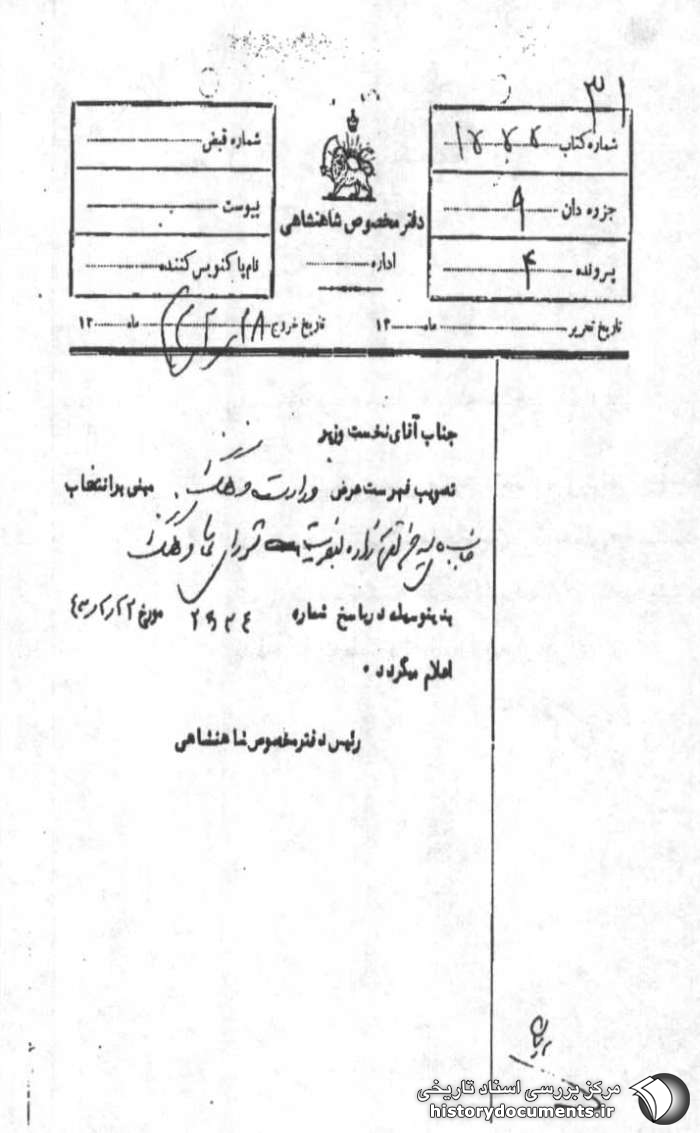 ۳۱
شماره کتاب ۱۷۷۷
جزوه دان ۹
پرونده ۴
دفتر مخصوص شاهنشاهی
اداره
شماره قبض
پیوست
نام پاکنویس کننده
تاریخ تحریر ماه ۱۳
تاریخ خروج ماه ۱۳
جناب آقای نخست وزیر
تصویب فهرست عرض وزارت فرهنگ مبنی بر انتخاب
شورای فرهنگ
بدینوسیله در پاسخ شماره مورخ
اعلام میگردد .
رئیس دفتر مخصوص شاهنشاهی
مرکز بررسی اسناد تاریخی
historydocuments.ir